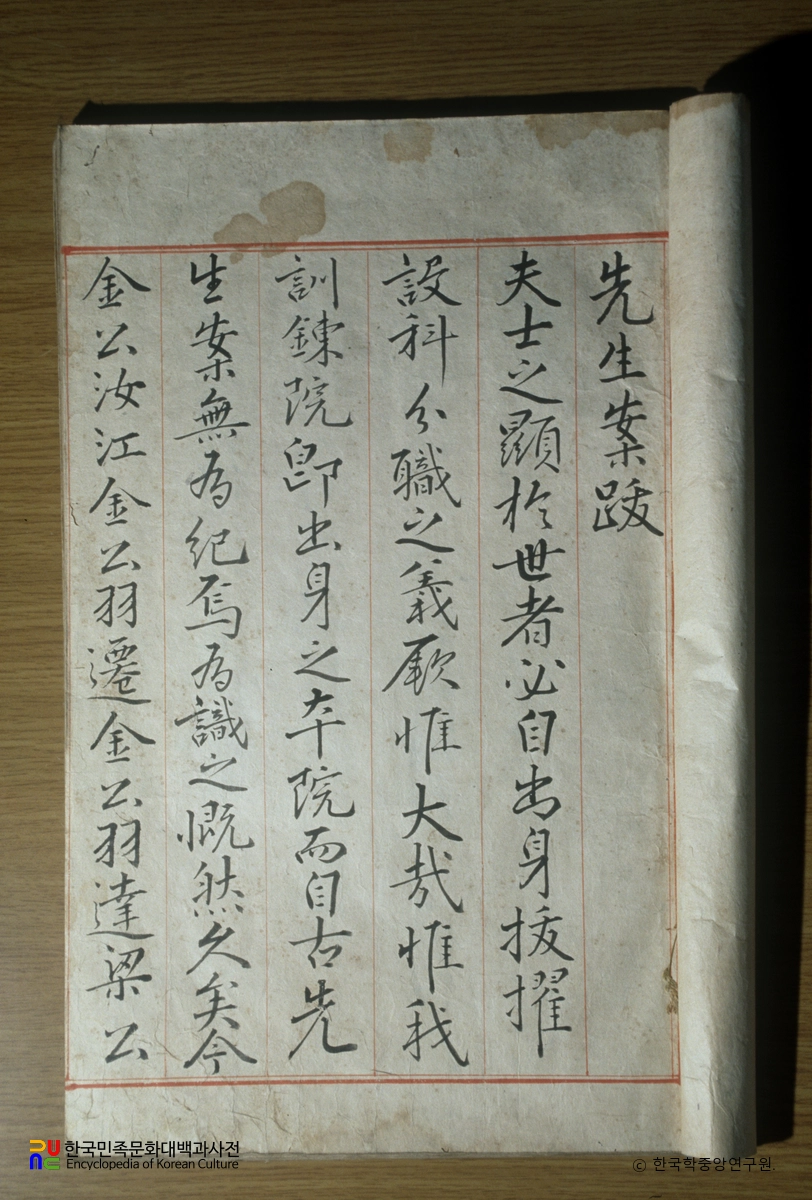 先生案跋
夫士之顯於世者必自出身拔擢
設科分職之義厥惟大哉惟我
訓鍊院卽出身之本院而自古先
生案無為紀焉為識之慨然久矣今
金公汝江金公羽遷金公羽達梁公
한국민족문화대백과사전
Encyclopedia of Korean Culture
© 한국학중앙연구원.